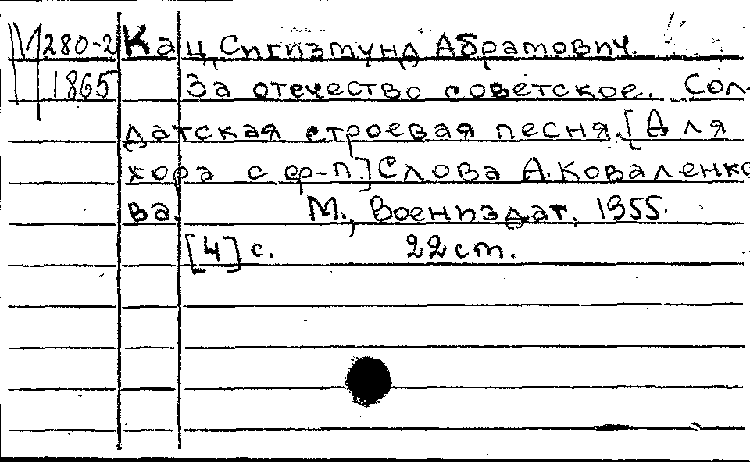 М280-2 Кац, Сигизмунд Абрамович.
1865 За отечество советское. Сол-
датская строевая песня. [Для
хора с ф-п.] Слова А. Коваленко-
ва. М., Воениздат, 1955.
[4] с. 22 cm.